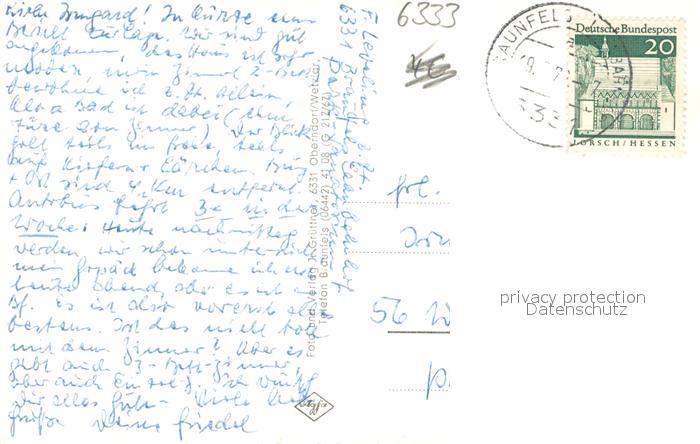 Liebe Irmgard! In Kürze einen
Bericht zur Lage. Wir sind gut
angekommen, das Haus ist sehr
modern, mein Zimmer 2-Bett
bewohne ich z. Zt. allein,
Klo + Bad ist dabei (eine
Türe zum Zimmer) Der Blick
geht teils ins freie, teils
auf Kiefern + Lärchen. Burg
+ Ort sind 4 km entfernt.
Autobus fährt 3x in der
Woche. Heute nachmittag
werden wir schon untersucht
mein Gepäck bekomme ich erst
heute abend, aber es ist am
Bf. Es ist also vorerst alles
bestens. Ist das nicht toll
mit dem Zimmer? Aber es
gibt auch 3-Bett-Zimmer
aber auch Einzelz. Ich wünsche
Dir alles Gute - Viele liebe
Grüße Deine Friedel
z. Zt.
6331 Braunfels
Foto und Verlag J. Grüttner, 6331 Oberndorf/Wetzlar,
Telefon Braunfels (06442) 41 08 (9 217/67)
Agfa
6333
BRAUNFELS
Deutsche Bundespost
20
LORSCH/HESSEN
Frl.
56 W
privacy protection
Datenschutz